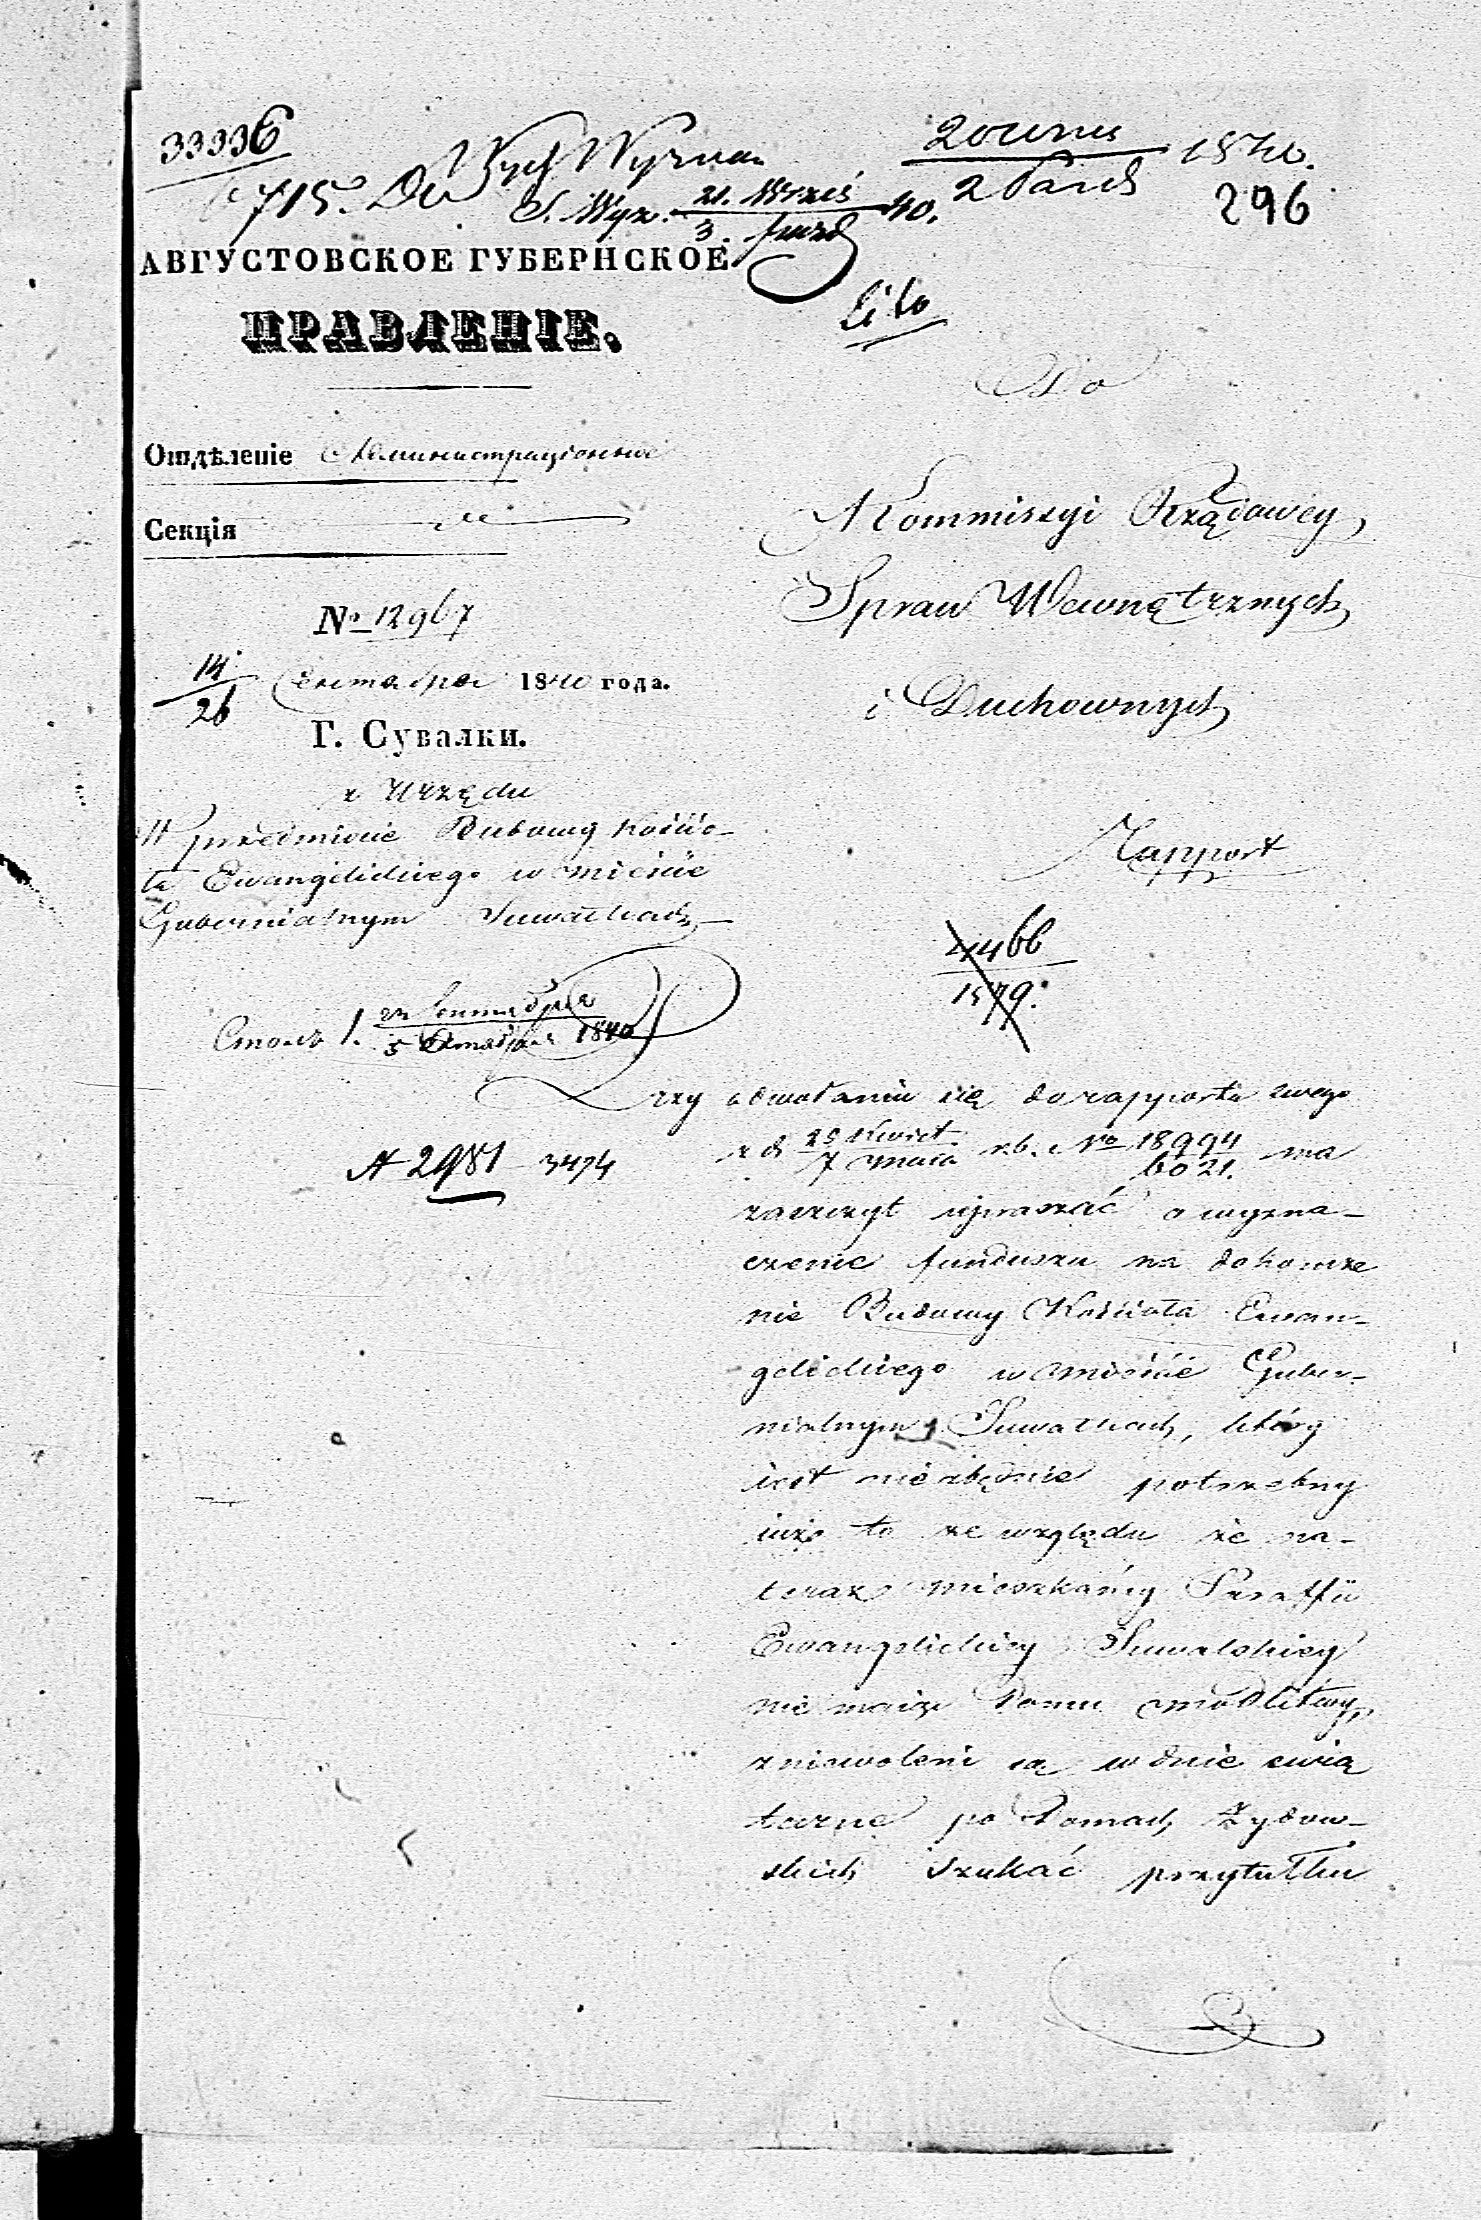 33336
715.
Wyzna.
S. Wyz. 21. Wrześ 40.
3.
1840.
296
АВГУСТОВСКОЕ ГУБЕРНСКОЕ
ПРАВЛЕНІЕ.
Отдѣленіе Администраціонное
Секція
№ 12967
14
26
Сентября 1840 года.
Г. Сувалки.
z Urzędu
W przedmiocie Budowy Kościo-
ła Ewangelickiego w mieście
Gubernialnym Suwałkach
Столъ 1.
Сентября
5 Октября 1840
A 2981 3474
Do
Kommissyi Rządowéy
Spraw Wewnętrznych
i Duchownych
Rapport
4466
1579.
Przy odwołaniu się do rapportu swego
z d 25 Kwiet. r.b. No 18994 ma
7 Maia 6021.
zaszczyt upraszać o wyzna-
czenie funduszu na dokończe
nie Budowy Kościoła Ewan-
gelickiego w mieście Guber-
nialnym Suwałkach, który
iest niezbędnie potrzebny
iuż to ze względu że na-
teraz mieszkańcy Paraffii
Ewangelickiey Suwalskiey
nie maiąc Domu modlitwy,
zniewoleni są w dnie świą
teczne po Domach Żydow-
skich szukać przytułku